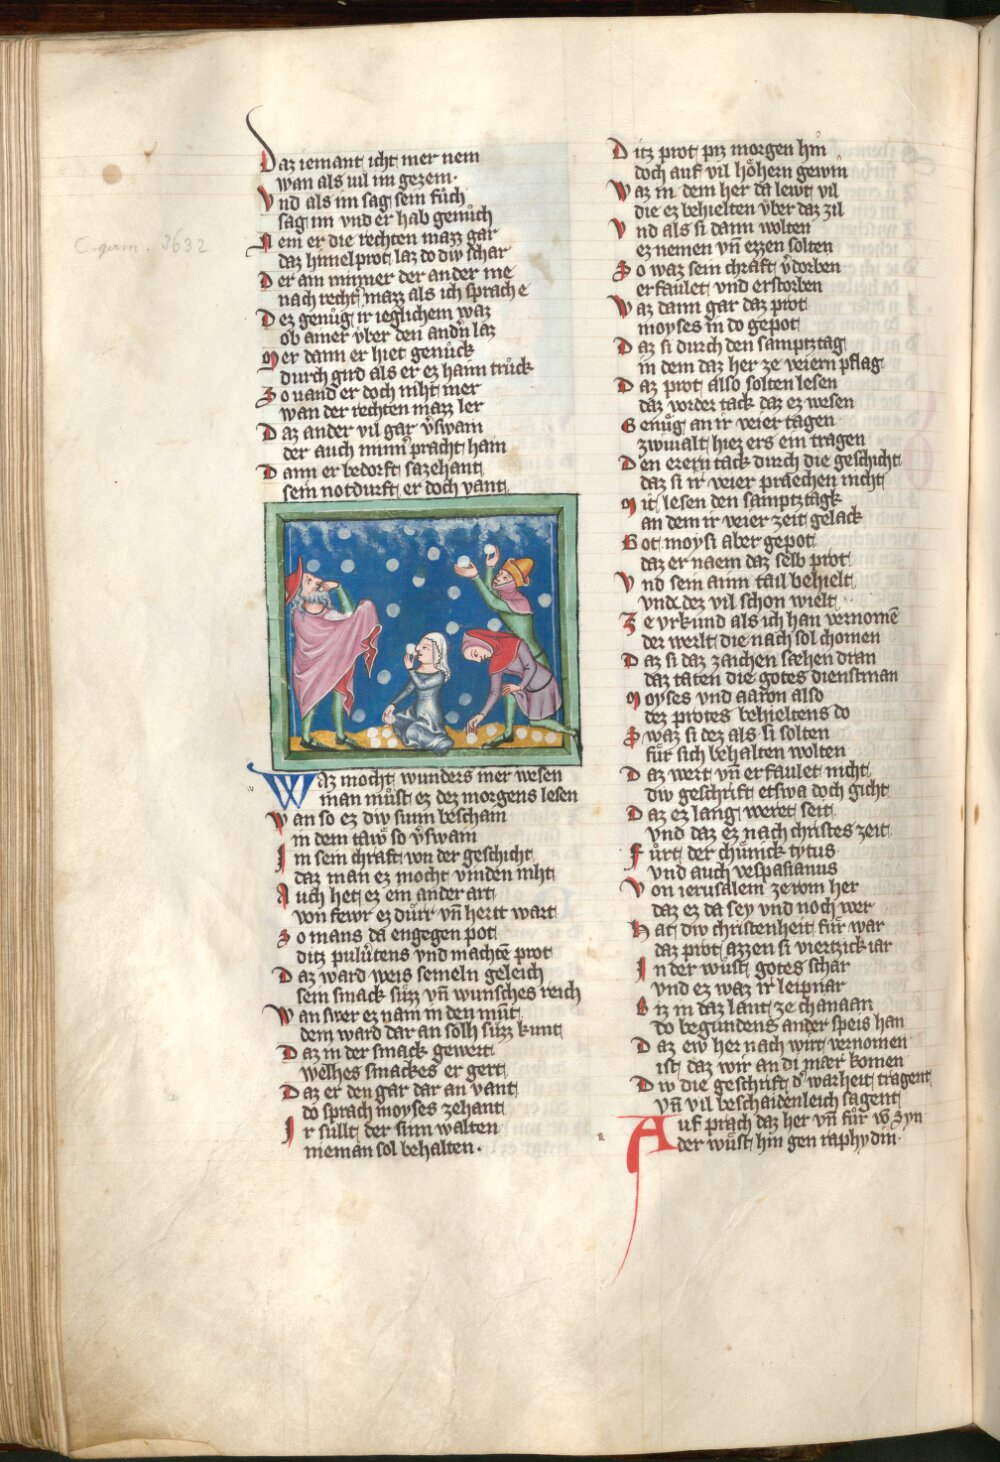 Cgm. 3632
Daz iemant icht mer nem
wan als uil im gezem.
Vnd als im sag sein fůch
sag im vnd er hab genůch
Nem er die rechten mazz gar
daz himelprot laz do diw schar
Der am nimmer der ander me
nach recht mazz als ich sprach e
Dez genůg ir ieglichem waz
ob ainer vber den andn laz
Mer dann er hiet genůck
durch gird als er ez haim trůck
So uand er doch niht mer
wan der rechten mazz ler
Daz ander vil gar vͦswam
der auch minn pracht haim
Dann er bedorft sazehant
sein notdurft er doch vant
Waz mocht wunders mer wesen
man můst ez dez morgens lesen
Wan so ez diw sunn beschain
in dem taw so vͦswain
Im sein chraft von der geschicht
daz man ez mocht vinden niht
Auch het ez ein ander art
von fewr ez důrr vn̄ hertt wart
So mans da engegen pot
ditz puluͤtens vnd machtē prot
Daz ward weis semeln geleich
sein smack sůzz vn̄ wunsches reich
Wan swer ez nam in den můt
dem ward dar an solh sůzz kunt
Daz in der smack gewert
welhes smackes er gert
Daz er den gar dar an vant
do sprach moyses zehant
Ir sullt der sinn walten
nieman sol behalten.
Ditz prot piz morgen hin
doch auf vil hoͤhern gewin
Waz in dem her da lewt vil
die ez behielten vber daz zil
Vnd als si dann wolten
ez nemen vn̄ ezzen solten
So waz sein chraft vͦdorben
erfaulet vnd erstorben
Waz dann gar daz prot
moyses in do gepot
Daz si durch den sampztag
in dem daz her ze veiern pflag
Daz prot also solten lesen
daz vorder tack daz ez wesen
Genůg an ir veier tagen
zwiualt hiez ers ein tragen
Den erern tack durch die geschicht
daz si ir veier praechen nicht
Mit lesen den sampztagk
an dem ir veier zeit gelack
Got moysi aber gepot
daz er naem daz selb prot
Vnd sein ainn tail behielt
vnde dez vil schon wielt
Ze vrkund als ich han vernomē
der werlt die nach sol chomen
Daz si daz zaichen sæhen dran
daz taten die gotes dienstman
Moyses vnd aaron also
dez protes behieltens do
Swaz si dez als si solten
fůr sich behalten wolten
Daz wert vn̄ erfaulet nicht
diw geschrift etswa doch gicht
Daz ez lang weret seit
vnd daz ez nach christes zeit
Fůrt der chůnick tytus
vnd auch vespasianus
Von ierusalem ze rom her
daz ez da sey vnd noch wer
Hat diw christenheit fůr war
daz prot azzen si viertzick iar
In der wůst gotes schar
vnd ez waz ir leipnar
Biz in daz lant ze chanaan
do begundens ander speis han
Daz ew her nach wirt vernomen
ist daz wir an di mær komen
Diw die geschrift dͦ warheit tragent
vn̄ vil beschaidenleich sagent
Auf prach daz her vn̄ fůr vͦ Syn
der wůst hin gen raphydin.